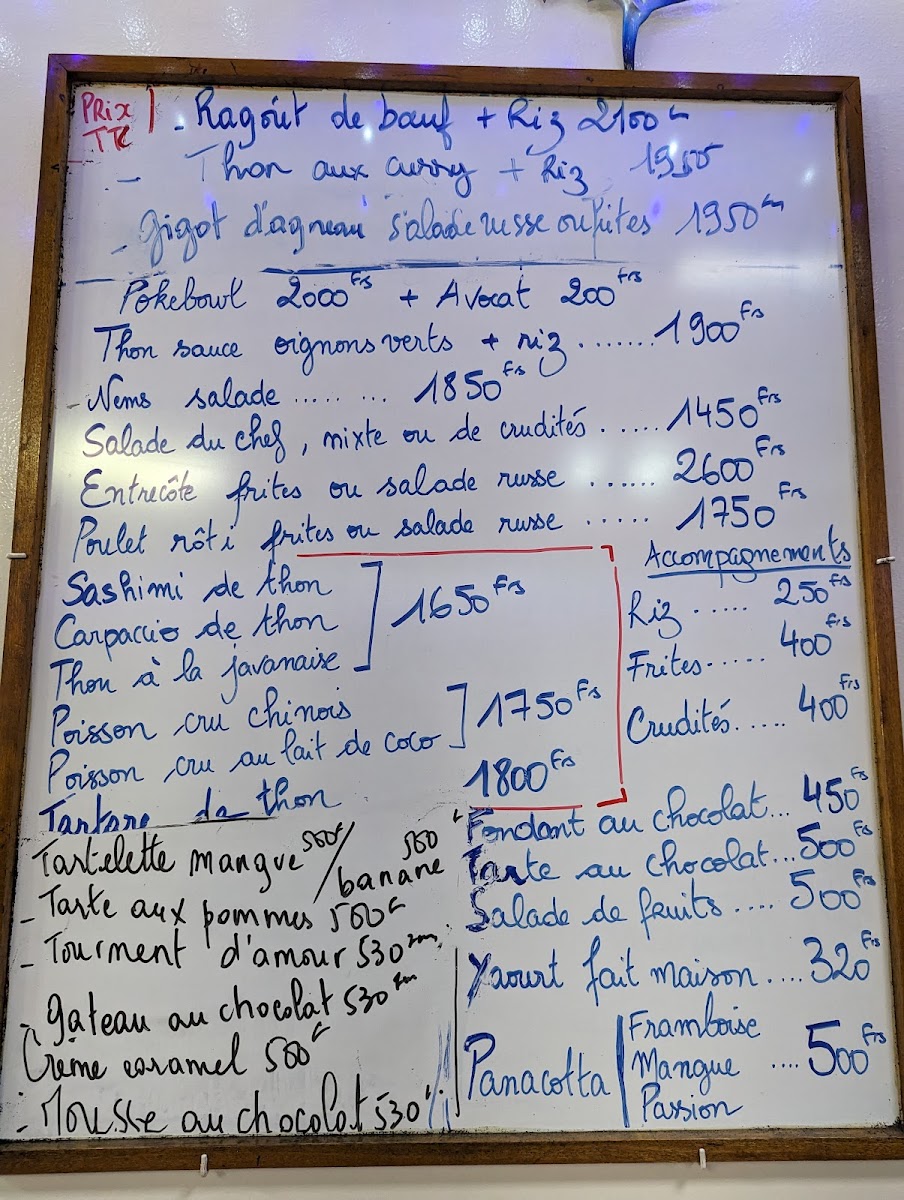 PRix
TTC
- Ragoût de bœuf + Riz 2100
- Thon aux curry + Riz 1950
- Gigot d'agneau salade russe ou frites 1950
Pokebowl 2000 Frs + Avocat 200 Frs
Thon sauce oignons verts + riz ....... 1900 Frs
- Nems salade ..... ... 1850 Frs
Salade du chef, mixte ou de crudités ..... 1450 Frs
Entrecôte frites ou salade russe ...... 2600 Frs
Poulet rôti frites ou salade russe ..... 1750 Frs
Sashimi de thon
Carpaccio de thon
Thon à la javanaise
1650 Frs
Poisson cru chinois
Poisson cru au lait de coco
1750 Frs
Tartare de thon 1800 Frs
Accompagnements
Riz ..... 250 Frs
Frites ..... 400 Frs
Crudités ..... 400 Frs
Tartelette mangue 500 / banane 500
- Tarte aux pommes 500
- Tourment d'amour 530
- gateau au chocolat 530
Crème caramel 500
- Mousse au chocolat 530
Fondant au chocolat... 450 Frs
Tarte au chocolat... 500 Frs
Salade de fruits .... 500 Frs
Yaourt fait maison .... 320 Frs
Panacotta
Framboise
Mangue .... 500 Frs
Passion